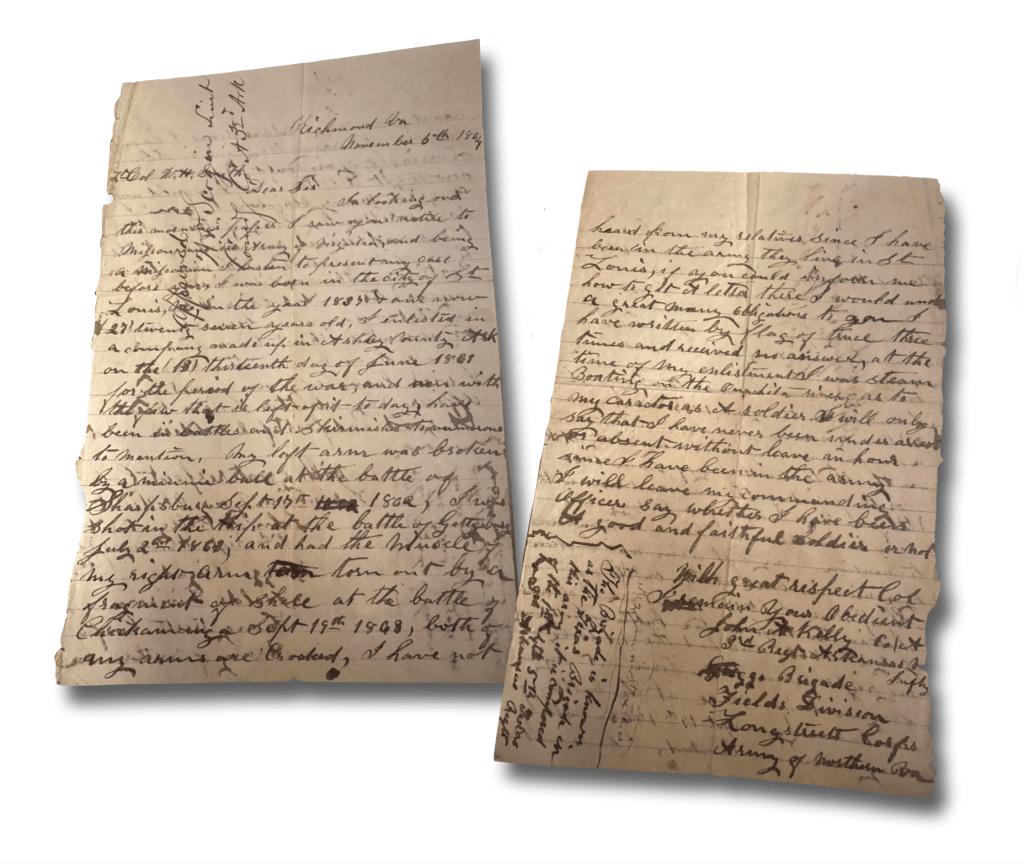 Richmond Va
November 5th 1864
Lt Col W. H.
Dear Sir
In looking over
this morning's paper I saw your notice to
Missourians in the army is
and being
a Missourian I hasten to present my case
before you, I was born in the City of St
Louis, in the year 1837 and am now
(27) twenty seven years old, I enlisted in
a company made up in Ashley County Ark
on the (13) thirteenth day of June 1861
for the period of the war, and am with
the few that is left of it to day, I have
been in battles and skirmishes to numerous
to mention, My left arm was broken
by a minnie ball at the battle of
Sharpsburg Sept 17th 1862, I was
shot in the hip at the battle of Gettysburg
July 2nd 1863, and had the muscle of
my right arm torn out by a
fragment of a shell at the battle of
Chickamauga Sept 19th 1863, both of
my arms are Crooked, I have not
Co A 3rd Ark
heard from my relatives since I have
been in the army they live in St
Louis, if you could inform me
how to get a letter there I would under
a great many obligations to you I
have written by flag of truce three
times and received no answer, at the
time of my enlistment I was steam
Boating on the Ouachita river, as to
my caracter as a soldier I will only
say that I have never been under arrest
or absent without leave an hour
since I have been in the army
I will leave my commanding
Officer say whether I have been
a good and faithful soldier or not
With great respect Col
I remain Your Obedient
John A Kelly Co A
3rd Regt Arkansas V
Infty
Greggs Brigade
Fields Division
Longstreets Corps
Army of Northern Va
is known
as the Texas Brigade in
this army